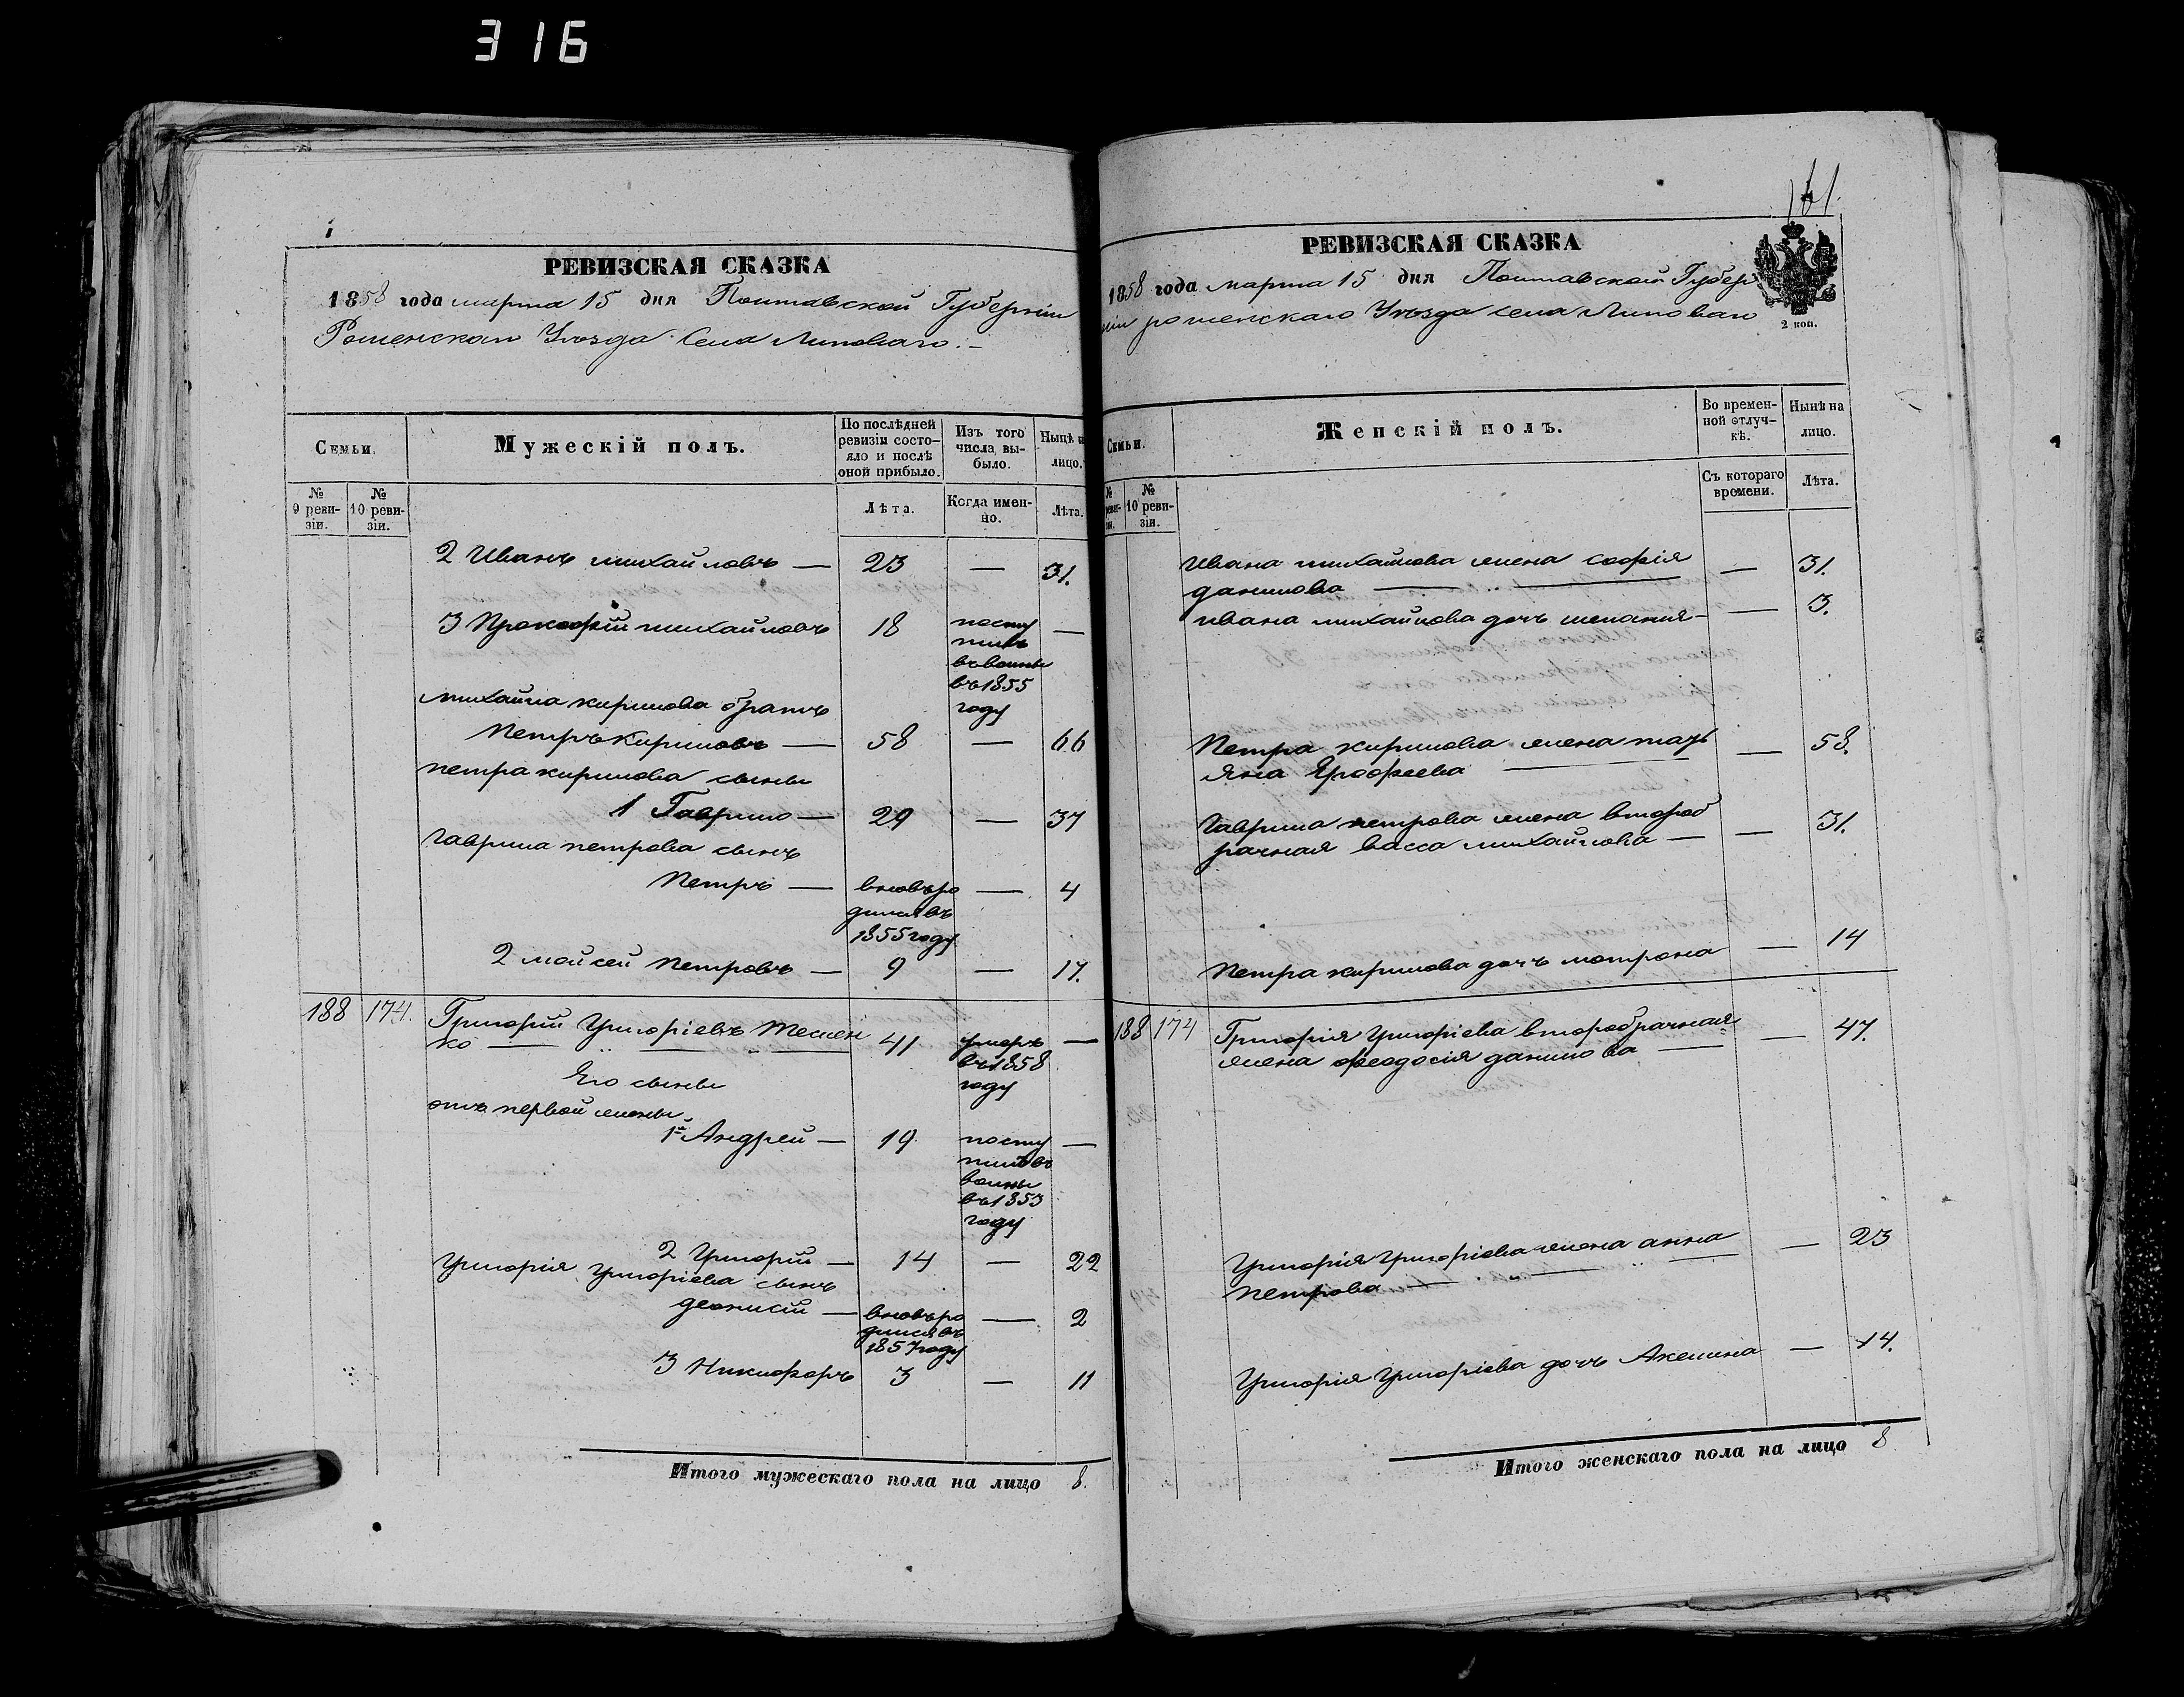 316
РЕВИЗСКАЯ СКАЗКА
1858 года марта 15 дня Полтавской Губерніи
Роменскаго Уѣзда Села Липоваго.
Семьи.
Мужескій полъ.
По послѣдней ревизіи состояло и послѣ оной прибыло.
Изъ того числа выбыло.
Нынѣ на лицо.
№ 9 ревизіи.
№ 10 ревизіи.
Лѣта.
Когда именно.
Лѣта.
2 Иванъ михайловъ — 23 — 31.
3 Прокофій михайловъ 18 поступилъ въ воины въ 1855 году —
михайла кирилова братъ
Петръ Кириловъ — 58 — 66
петра кирилова сыны
1 Гаврило — 29 — 37
гаврила петрова сынъ
Петръ — вновь родился въ 1855 году — 4
2 мойсей Петровъ — 9 — 17.
188 174. Григорій Григоріевъ
ко — 41 умеръ въ 1858 году —
Его сыны
отъ первой жены
1й Андрей — 19 поступилъ въ воины въ 1853 году —
2 Григорій — 14 — 22
Григорія Григоріева сынъ
деонисій — вновь родился въ 1857 году — 2
3 Никифоръ 3 — 11
Итого мужескаго пола на лицо 8.
161.
РЕВИЗСКАЯ СКАЗКА
1858 года марта 15 дня Полтавской Губер
ніи роменскаго Уѣзда села Липоваго
2 коп.
Семьи.
Женскій полъ.
Во временной отлучкѣ.
Нынѣ на лицо.
№ 10 ревизіи.
Съ котораго времени.
Лѣта.
Ивана михайлова жена софія
данилова — 31.
ивана михайлова дочь меланія — 3.
Петра кирилова жена тать
яна Ерофеева — 58.
Гаврила петрова жена второб
рачная васса михайлова — 31.
Петра кирилова дочь матрона — 14
188 174 Григорія Григоріева второбрачная
жена феодосія данилова — 47.
Григорія Григоріева жена анна
Петрова — 23
Григорія Григоріева дочь Акелина — 14.
Итого женскаго пола на лицо 8